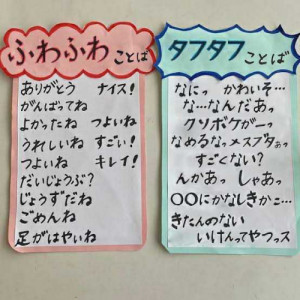 ふわふわことば
ありがとう ナイス!
がんばってね
よかったね つよいね
うれしいね すごい!
つよいね キレイ!
だいじょうぶ?
じょうずだね
ごめんね
足がはやいね
タフタフことば
なにっ かわいそ…
な…なんだあっ
クソボケがー
なめるなっメスブタぁっ
すごくない?
んかあっ しゃあっ
○○にかなしきかこ…
きたんのない
いけんってやつっス